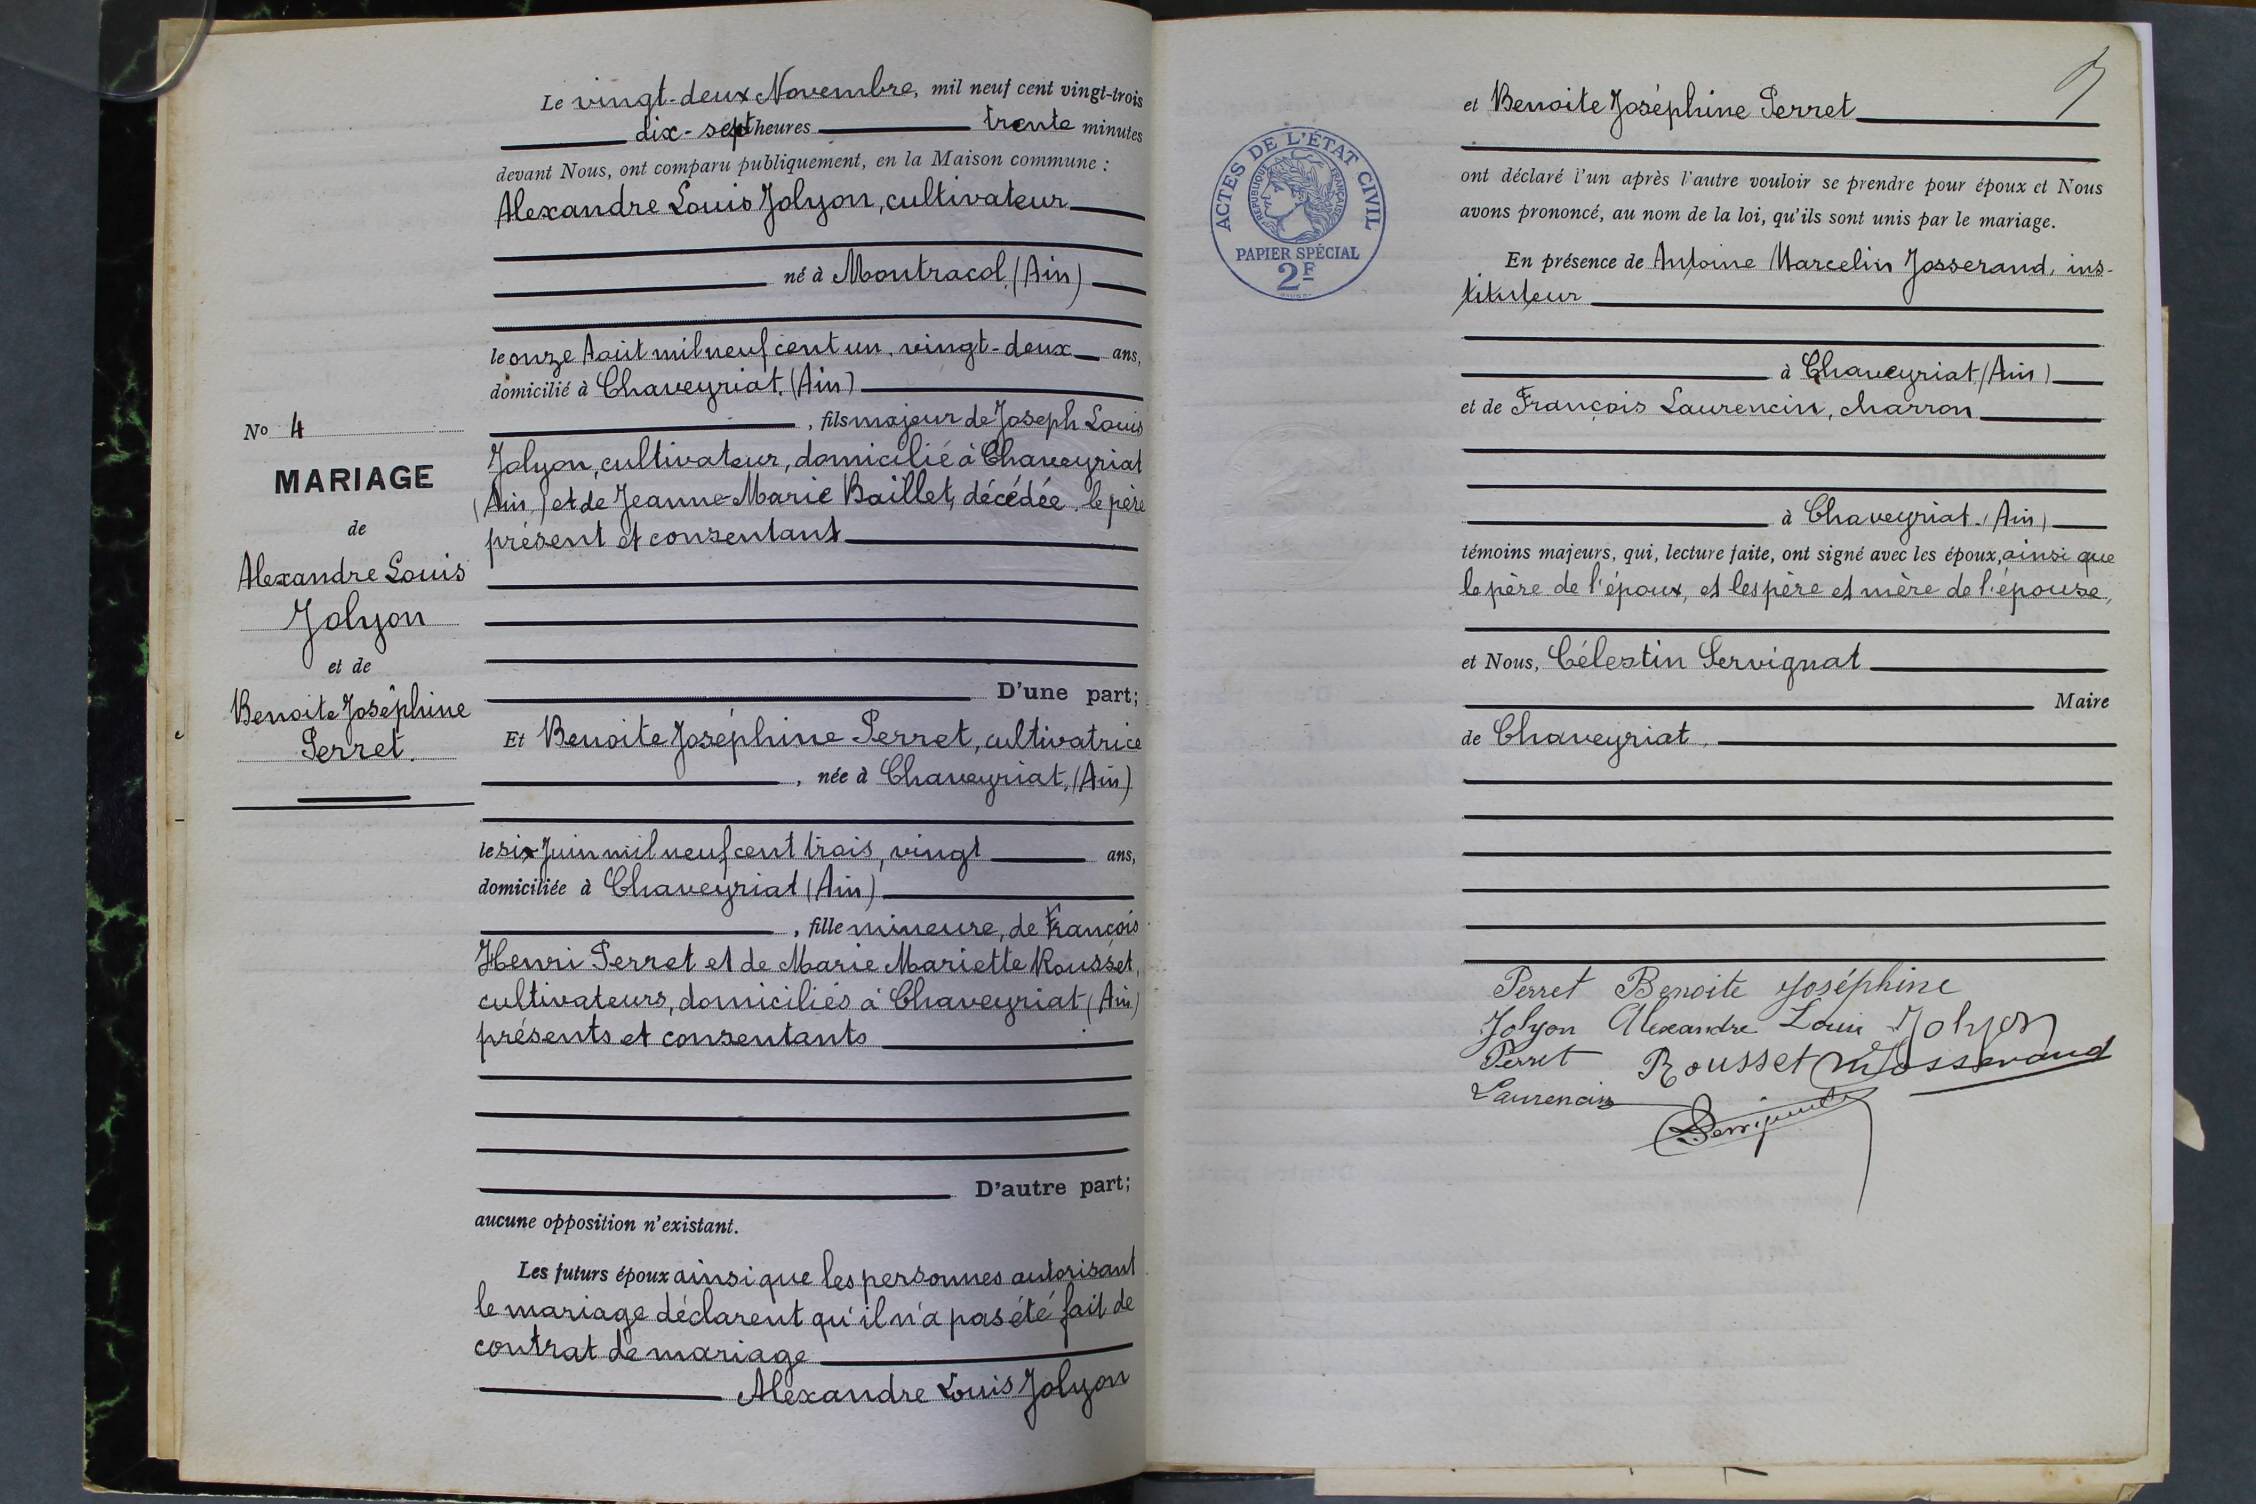 Le vingt-deux Novembre, mil neuf cent vingt-trois
dix-sept heures trente minutes
devant Nous, ont comparu publiquement, en la Maison commune :
Alexandre Louis Jolyon, cultivateur
né à Montracol (Ain)
le onze Août mil neuf cent un, vingt-deux ans,
domicilié à Chaveyriat, (Ain)
, fils majeur de Joseph Louis
Jolyon, cultivateur, domicilié à Chaveyriat
(Ain) et de Jeanne-Marie Baillet, décédée, le père
présent et consentant
D'une part;
Et Benoite Joséphine Perret, cultivatrice
, née à Chaveyriat, (Ain)
le six Juin mil neuf cent trois, vingt ans,
domiciliée à Chaveyriat (Ain)
, fille mineure, de François
Henri Perret et de Marie Mariette Rousset,
cultivateurs, domiciliés à Chaveyriat (Ain)
présents et consentants
D'autre part;
aucune opposition n'existant.
Les futurs époux ainsi que les personnes autorisant
le mariage déclarent qu'il n'a pas été fait de
contrat de mariage
Alexandre Louis Jolyon
No 4
MARIAGE
de
Alexandre Louis
Jolyon
et de
Benoite Joséphine
Perret.
ACTES DE L'ÉTAT CIVIL
RÉPUBLIQUE FRANÇAISE
PAPIER SPÉCIAL
2F
et Benoite Joséphine Perret
ont déclaré l'un après l'autre vouloir se prendre pour époux et Nous
avons prononcé, au nom de la loi, qu'ils sont unis par le mariage.
En présence de Antoine Marcelin Josserand, ins-
tituteur
à Chaveyriat (Ain)
et de François Laurencin, charron
à Chaveyriat. (Ain)
témoins majeurs, qui, lecture faite, ont signé avec les époux, ainsi que
le père de l'époux, et les père et mère de l'épouse,
et Nous, Célestin Servignat
Maire
de Chaveyriat.
Perret Benoite Joséphine
Jolyon Alexandre Louis Jolyon
Perret Rousset M Josserand
Laurencin
Servignat